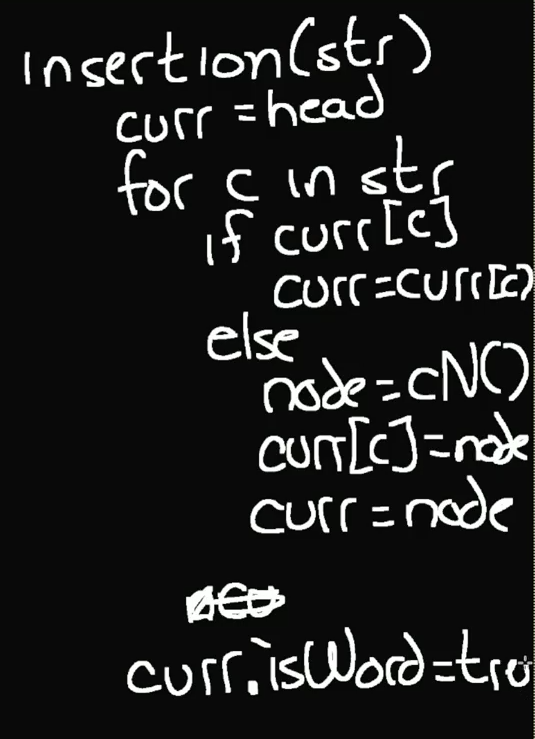 insertion(str)
curr = head
for c in str
if curr[c]
curr=curr[c)
else
node=cN()
curr[c]=node
curr=node
curr.isWord=tru